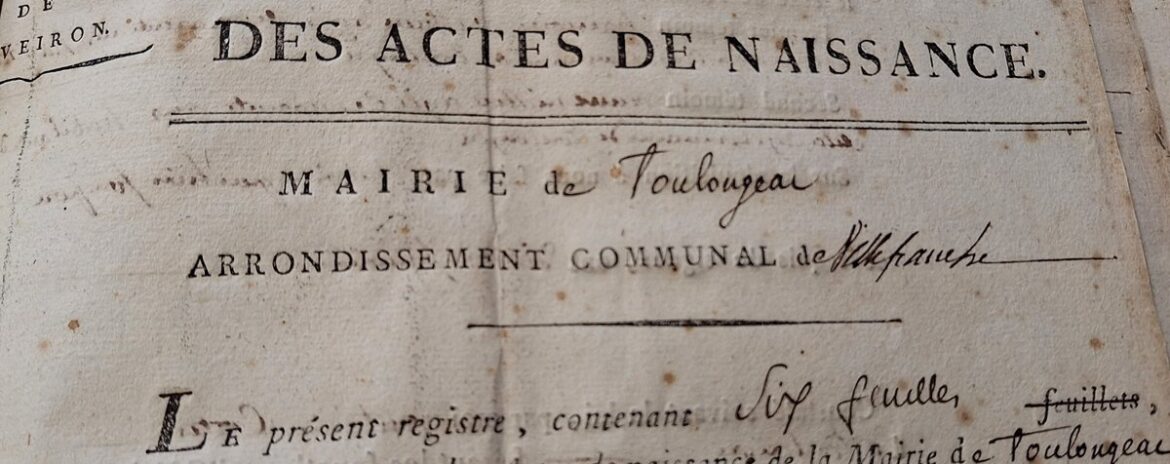 DE
VEIRON.
DES ACTES DE NAISSANCE.
MAIRIE de Toulongeac
ARRONDISSEMENT COMMUNAL de Villefranche
LE présent registre, contenant Six feuilles feuillets,
naissance de la Mairie de Toulongeac